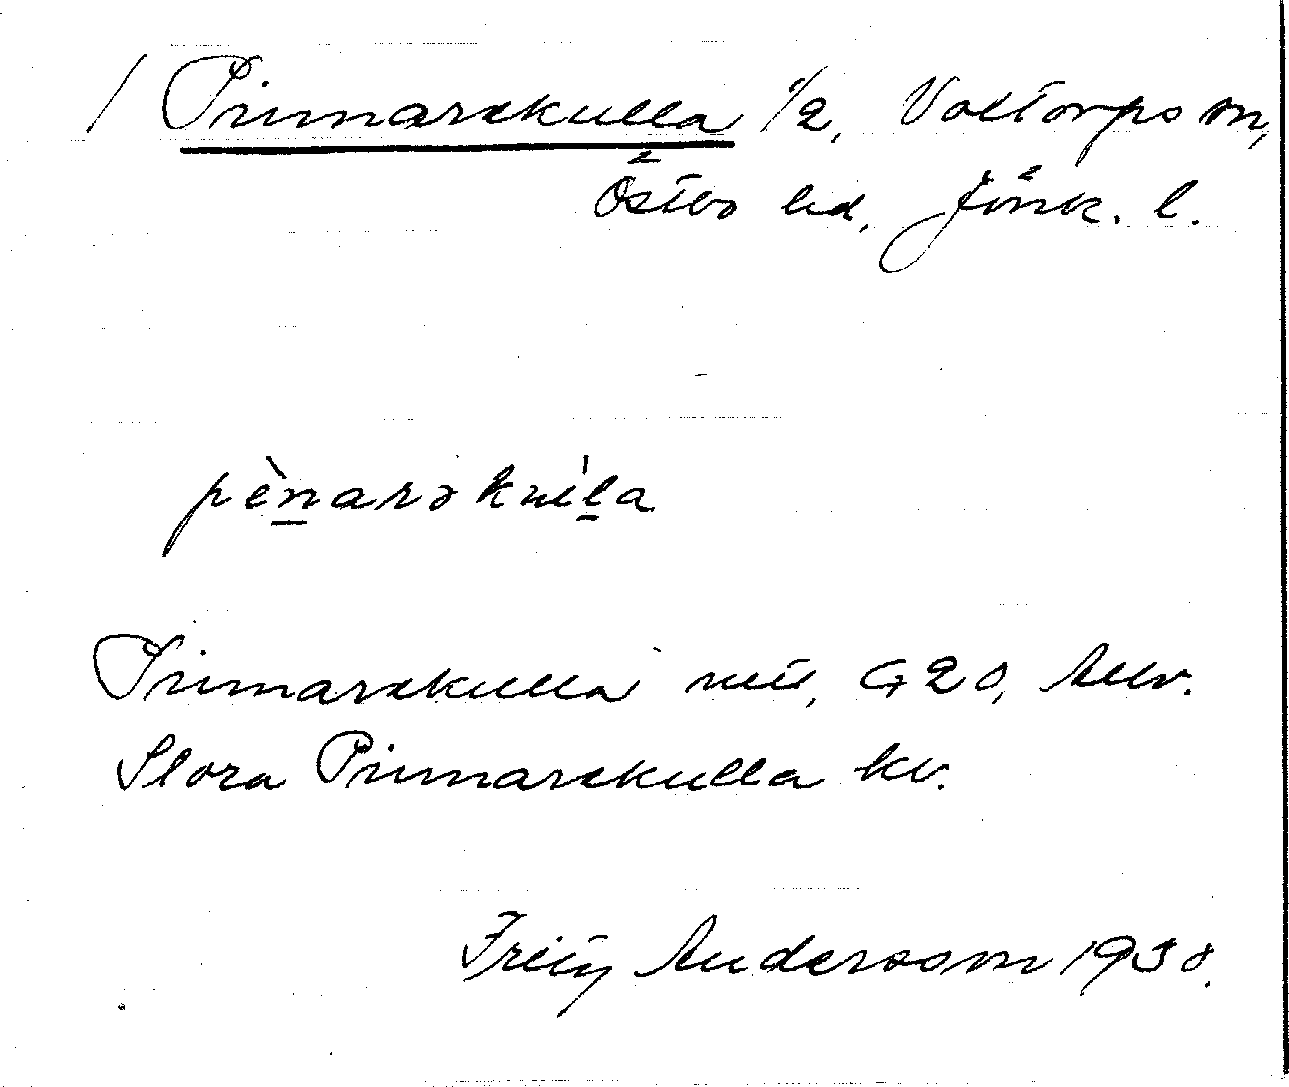 / Pinnarekulla 1/2, Voxtorps sn,
Östbo hd, Jönk. l.
pènarəkuĺa
Pinnarekulla nU, G20, Allv.
Stora Pinnarekulla kv.
Andersson 1938.